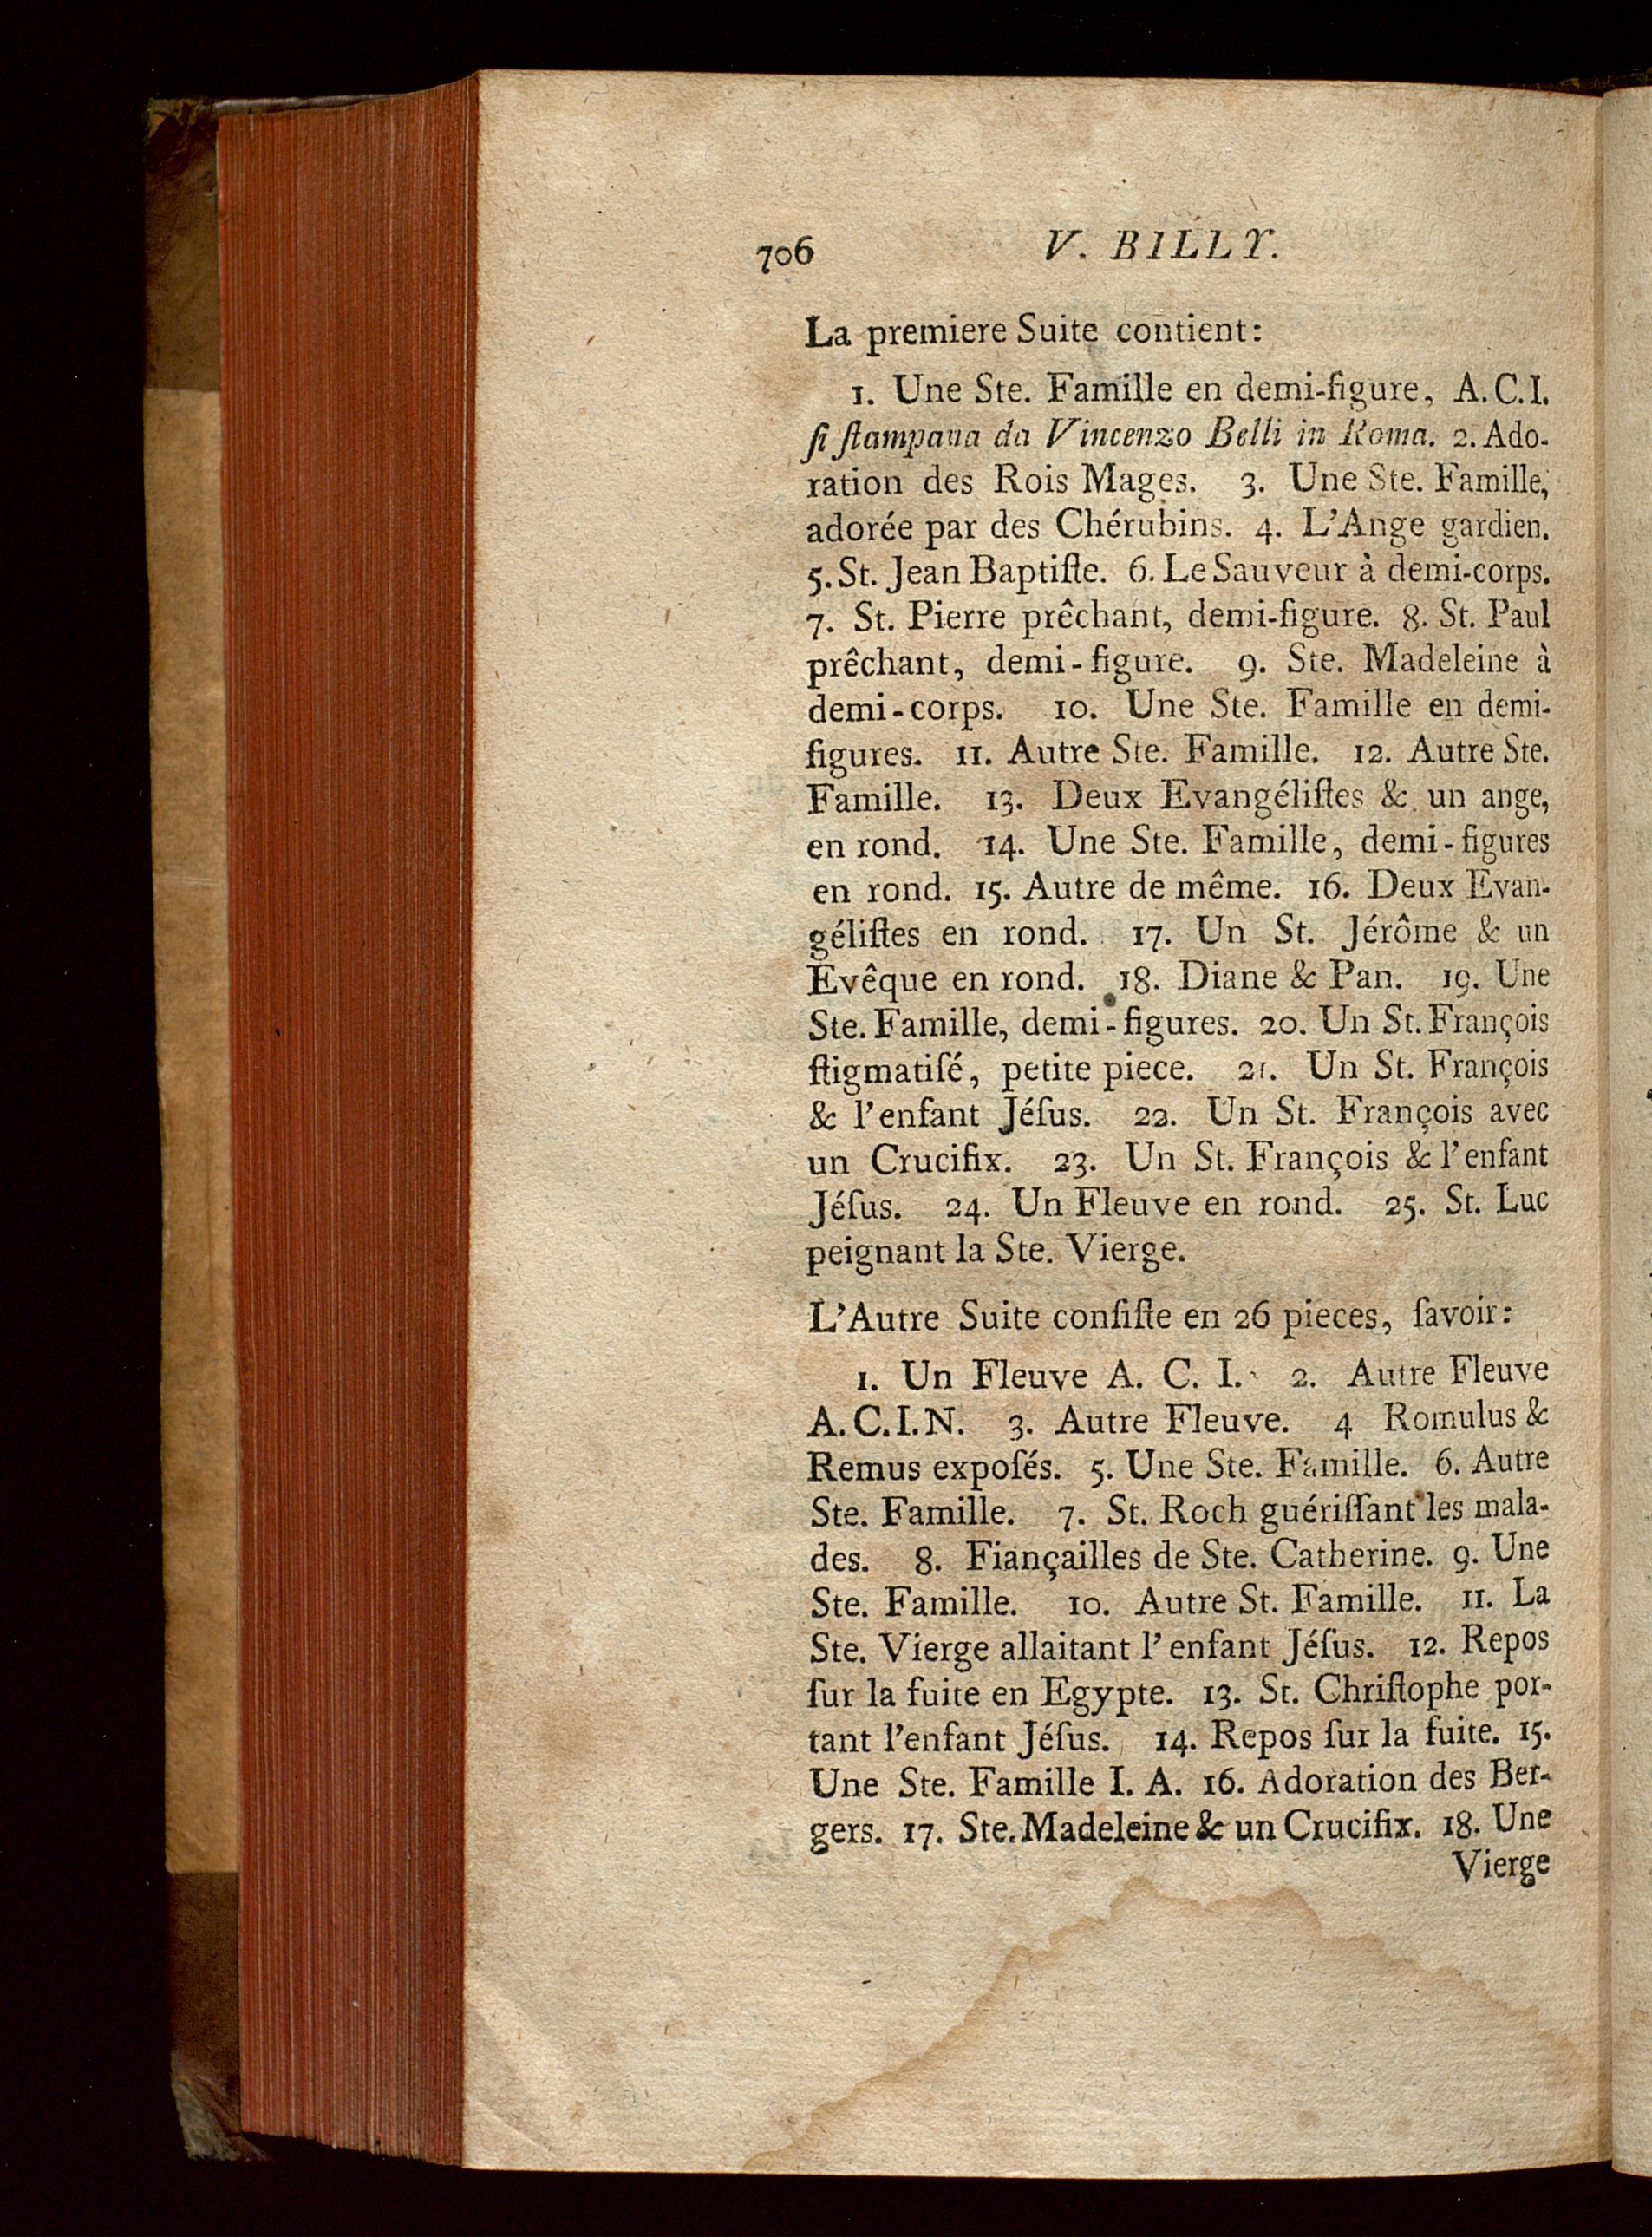 706 V. BILLY.
La premiere Suite contient:
1. Une Ste. Famille en demi-figure, A. C. I.
ſi ſtampana da Vincenzo Belli in Roma. 2. Ado-
ration des Rois Mages. 3. Une Ste. Famille,
adorée par des Chérubins. 4. L'Ange gardien.
5. St. Jean Baptiſte. 6. Le Sauveur à demi-corps.
7. St. Pierre prêchant, demi-figure. 8. St. Paul
prêchant, demi-figure. 9. Ste. Madeleine à
demi-corps. 10. Une Ste. Famille en demi-
figures. 11. Autre Ste. Famille. 12. Autre Ste.
Famille. 13. Deux Evangéliſtes & un ange,
en rond. 14. Une Ste. Famille, demi-figures
en rond. 15. Autre de même. 16. Deux Evan-
géliſtes en rond. 17. Un St. Jérôme & un
Evêque en rond. 18. Diane & Pan. 19. Une
Ste. Famille, demi-figures. 20. Un St. François
ſtigmatiſé, petite piece. 21. Un St. François
& l'enfant Jéſus. 22. Un St. François avec
un Crucifix. 23. Un St. François & l'enfant
Jéſus. 24. Un Fleuve en rond. 25. St. Luc
peignant la Ste. Vierge.
L'Autre Suite conſiſte en 26 pieces, ſavoir:
1. Un Fleuve A. C. I. 2. Autre Fleuve
A. C. I. N. 3. Autre Fleuve. 4 Romulus &
Remus expoſés. 5. Une Ste. Famille. 6. Autre
Ste. Famille. 7. St. Roch guériſſant les mala-
des. 8. Fiançailles de Ste. Catherine. 9. Une
Ste. Famille. 10. Autre St. Famille. 11. La
Ste. Vierge allaitant l'enfant Jéſus. 12. Repos
ſur la fuite en Egypte. 13. St. Chriſtophe por-
tant l'enfant Jéſus. 14. Repos ſur la fuite. 15.
Une Ste. Famille I. A. 16. Adoration des Ber-
gers. 17. Ste. Madeleine & un Crucifix. 18. Une
Vierge